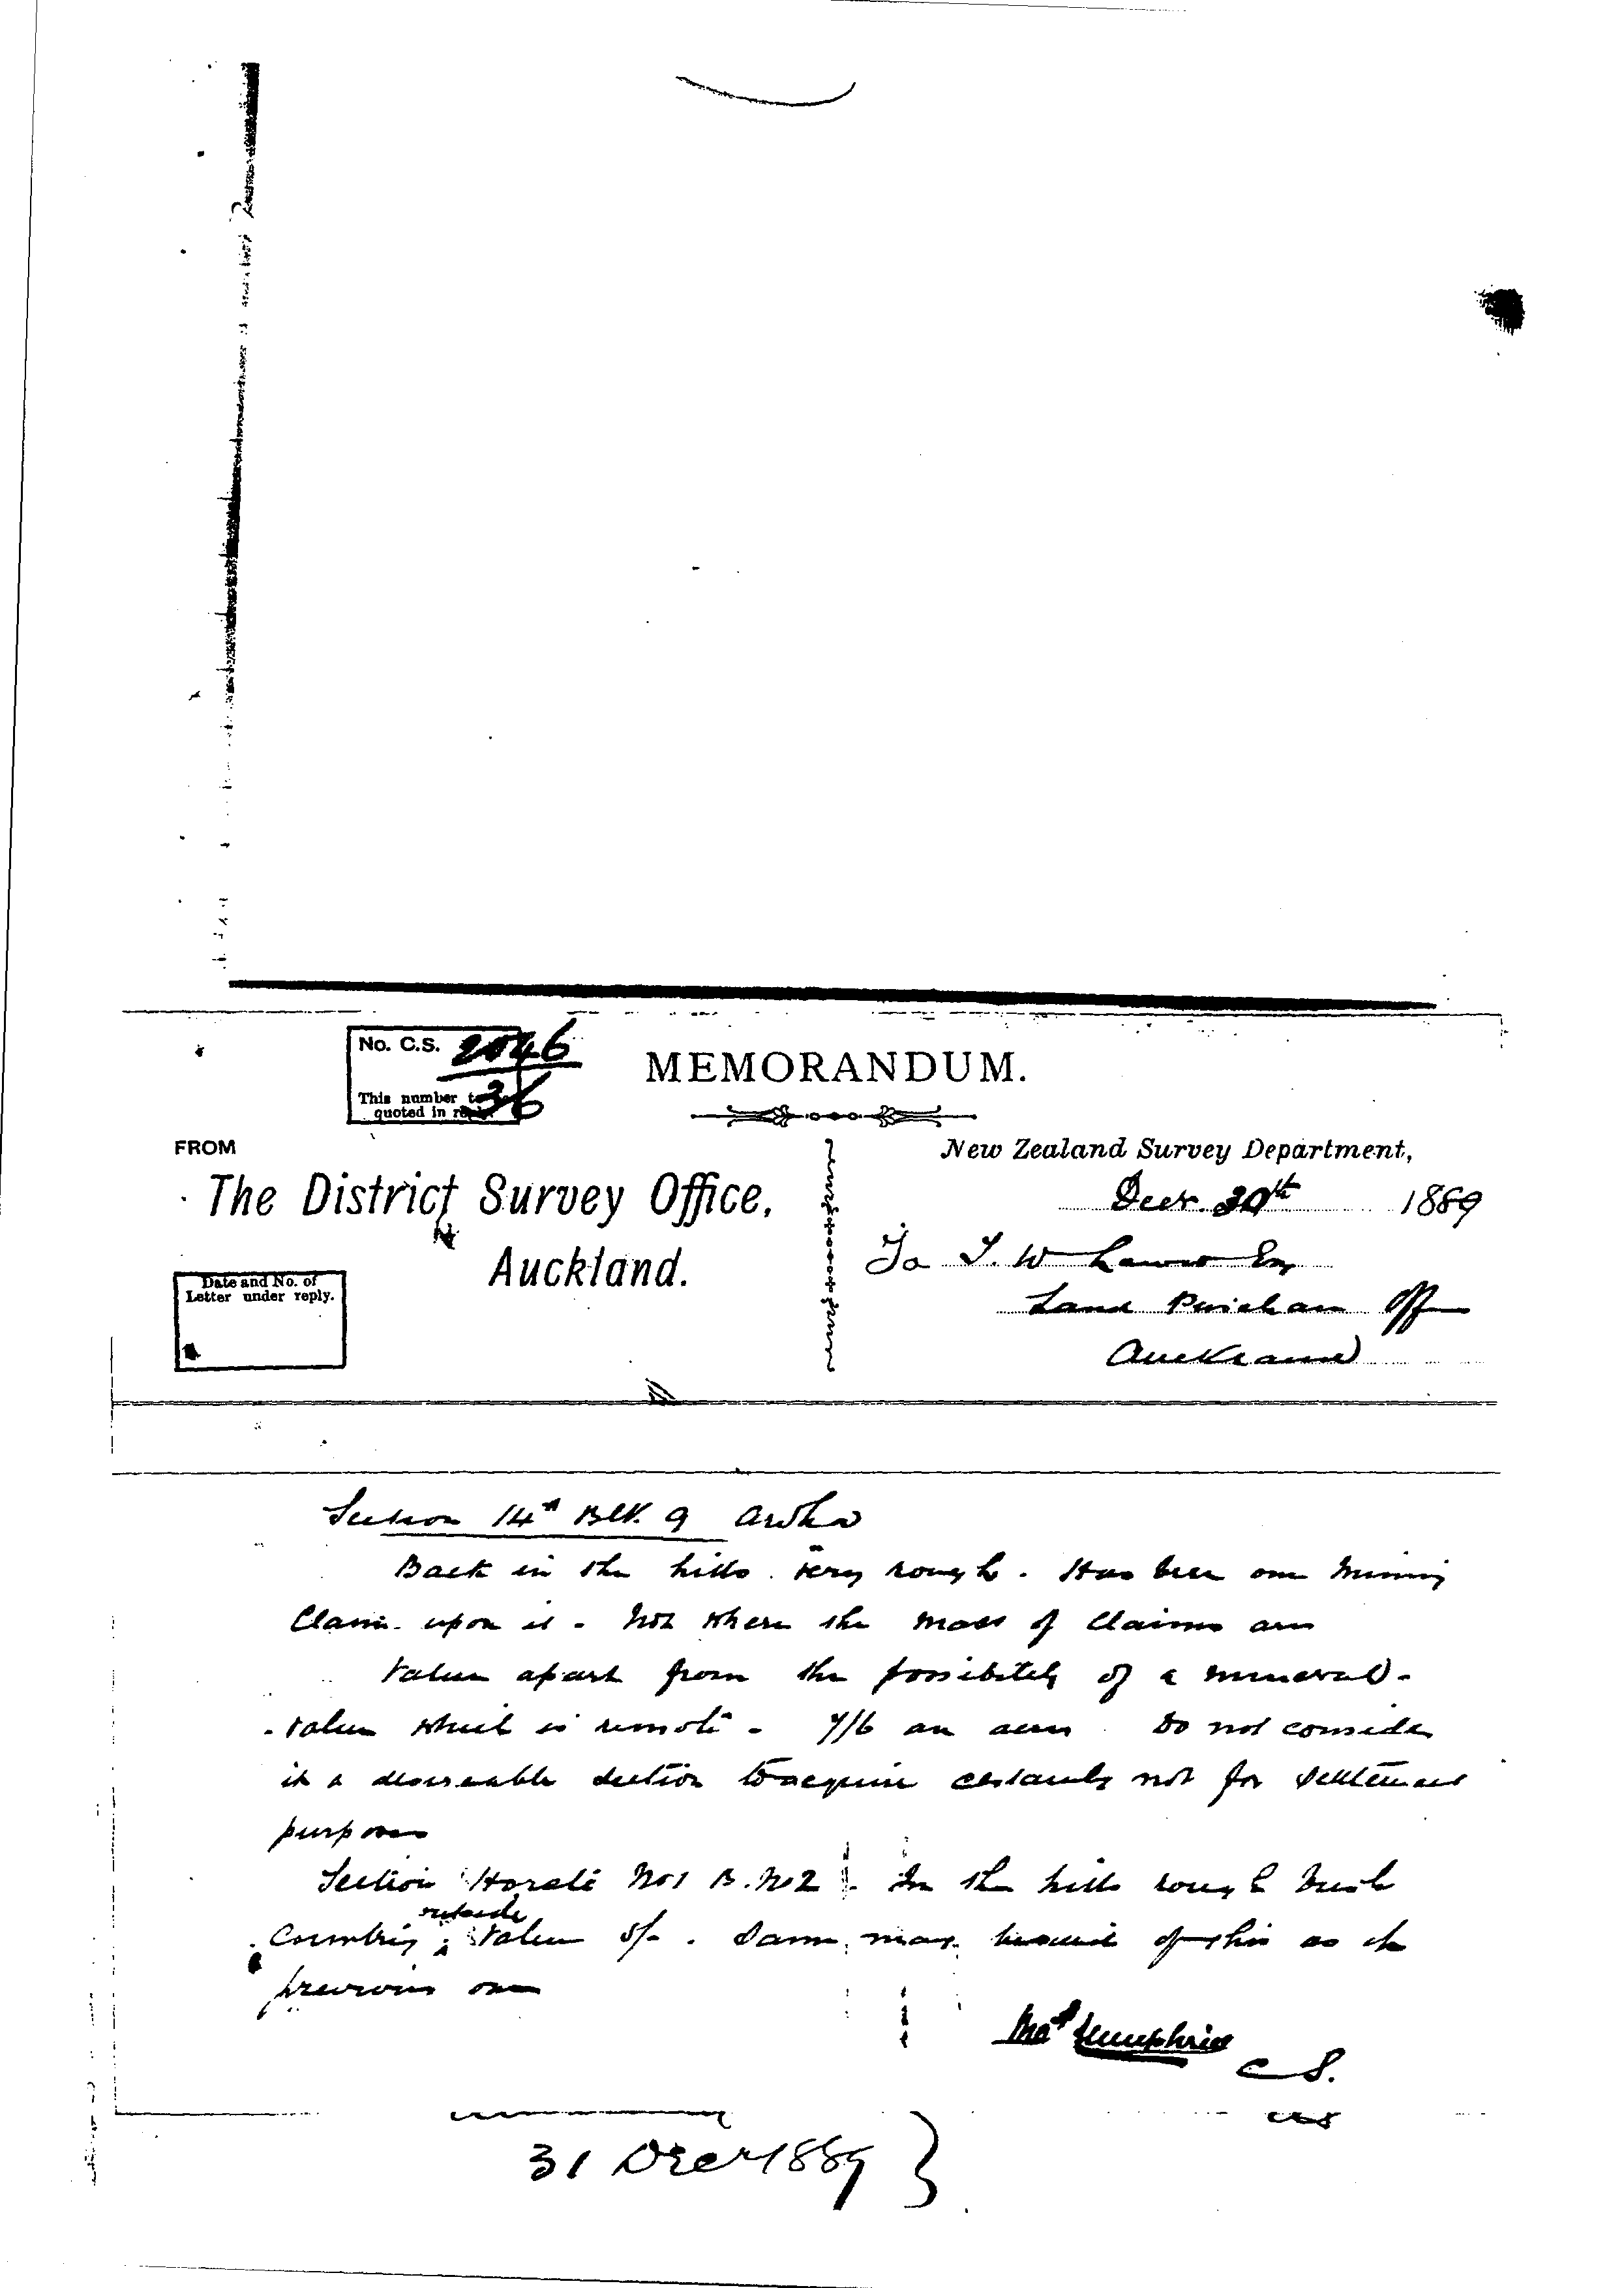 No. C.S. 2046
This number to
quoted in reply. 36
MEMORANDUM.
FROM
The District Survey Office,
Auckland.
Date and No. of
Letter under reply.
New Zealand Survey Department,
Decr. 30th 1889
To T. W. Lewis Esq
Land Purchase Off
Auckland
Section 14 Blk. 9 Aroha
Back in the hills. very rough. Has been one mining
Claim upon it. Not where the mass of Claims are
Value apart from the possibility of a mineral
value which is remote. 7/6 an acre. Do not consider
it a desireable section to acquire certainly not for settlement
purposes
Section Horete No1 B. No2. In the hills rough bush
Country; outside value 5/-. Same may be said of this as the
previous one
Thos Humphries
C S.
31 Decr 1889